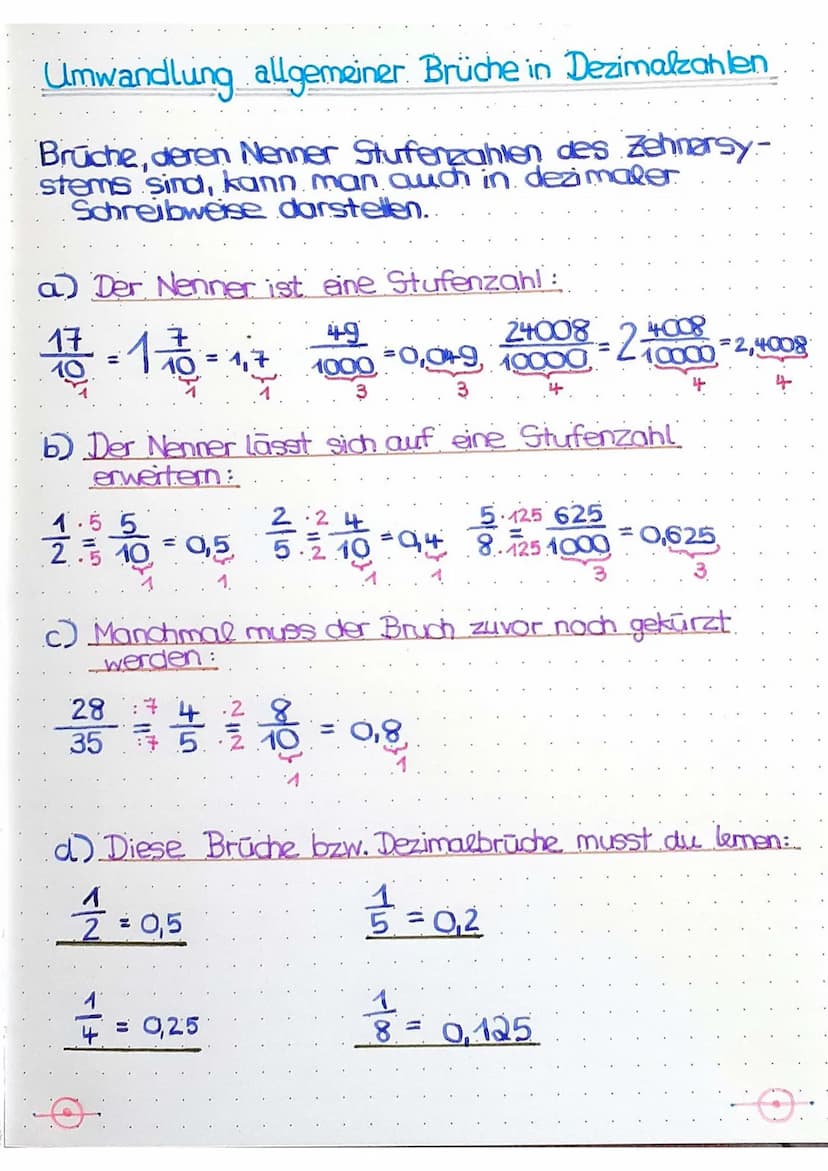 Umwandlung allgemeiner Brüche in Dezimalzahlen
Brüche, deren Nenner Stufenzahlen des Zehnersy-
stems sind, kann man auch in dezimaler
Schreibweise darstellen.
a) Der Nenner ist eine Stufenzahl:
17/10 = 1 7/10 = 1,7 49/1000 = 0,049 24008/10000 = 2 4008/10000 = 2,4008
1 1 1 3 3 4 4 4
b) Der Nenner lässt sich auf eine Stufenzahl
erweitern:
1/2 ·5/·5 = 5/10 = 0,5 2/5 ·2/·2 = 4/10 = 0,4 5/8 ·125/·125 = 625/1000 = 0,625
1 1 1 1 3 3
c) Manchmal muss der Bruch zuvor noch gekürzt
werden:
28/35 :7/:7 = 4/5 ·2/·2 = 8/10 = 0,8
1 1
d) Diese Brüche bzw. Dezimalbrüche musst du lernen:
1/2 = 0,5 1/5 = 0,2
1/4 = 0,25 1/8 = 0,125